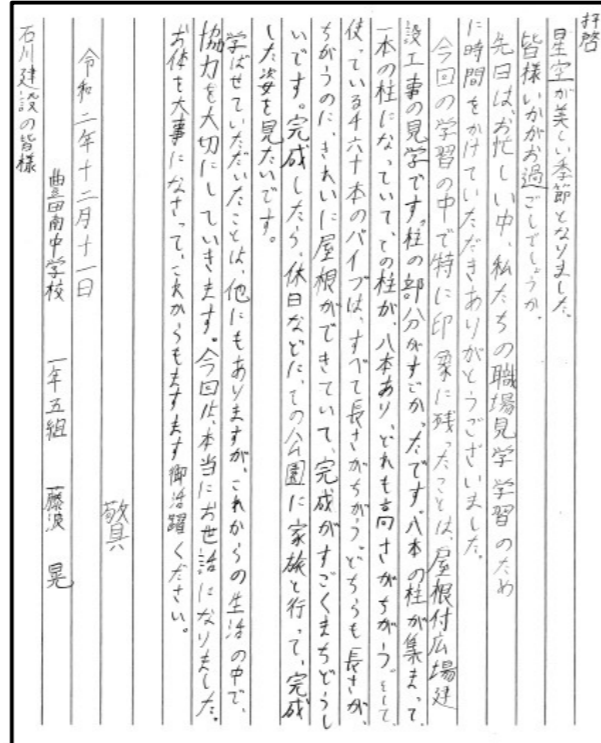 拝啓
星空が美しい季節となりました。
皆様いかがお過ごしでしょうか。
先日はお忙しい中、私たちの職場見学学習のため
に時間をかけていただきありがとうございました。
今回の学習の中で特に印象に残ったことは、屋根付広場建
設工事の見学です。柱の部分がすごかったです。八本の柱が集まって、
一本の柱になっていて、その柱が、八本あり、どれも高さがちがう。そして、
使っている千六十本のパイプは、すべて長さがちがう。どちらも長さが、
ちがうのに、きれいに屋根ができていて、完成がすごくまちどうし
いです。完成したら、休日などに、その公園に家族と行って、完成
した姿を見たいです。
学ばせていただいたことは、他にもありますが、これからの生活の中で、
協力を大切にしていきます。今回は、本当にお世話になりました。
お体を大事になさって、これからもますます御活躍ください。
敬具
令和二年十二月十一日
豊田南中学校 一年五組 藤浪 晃
石川建設の皆様